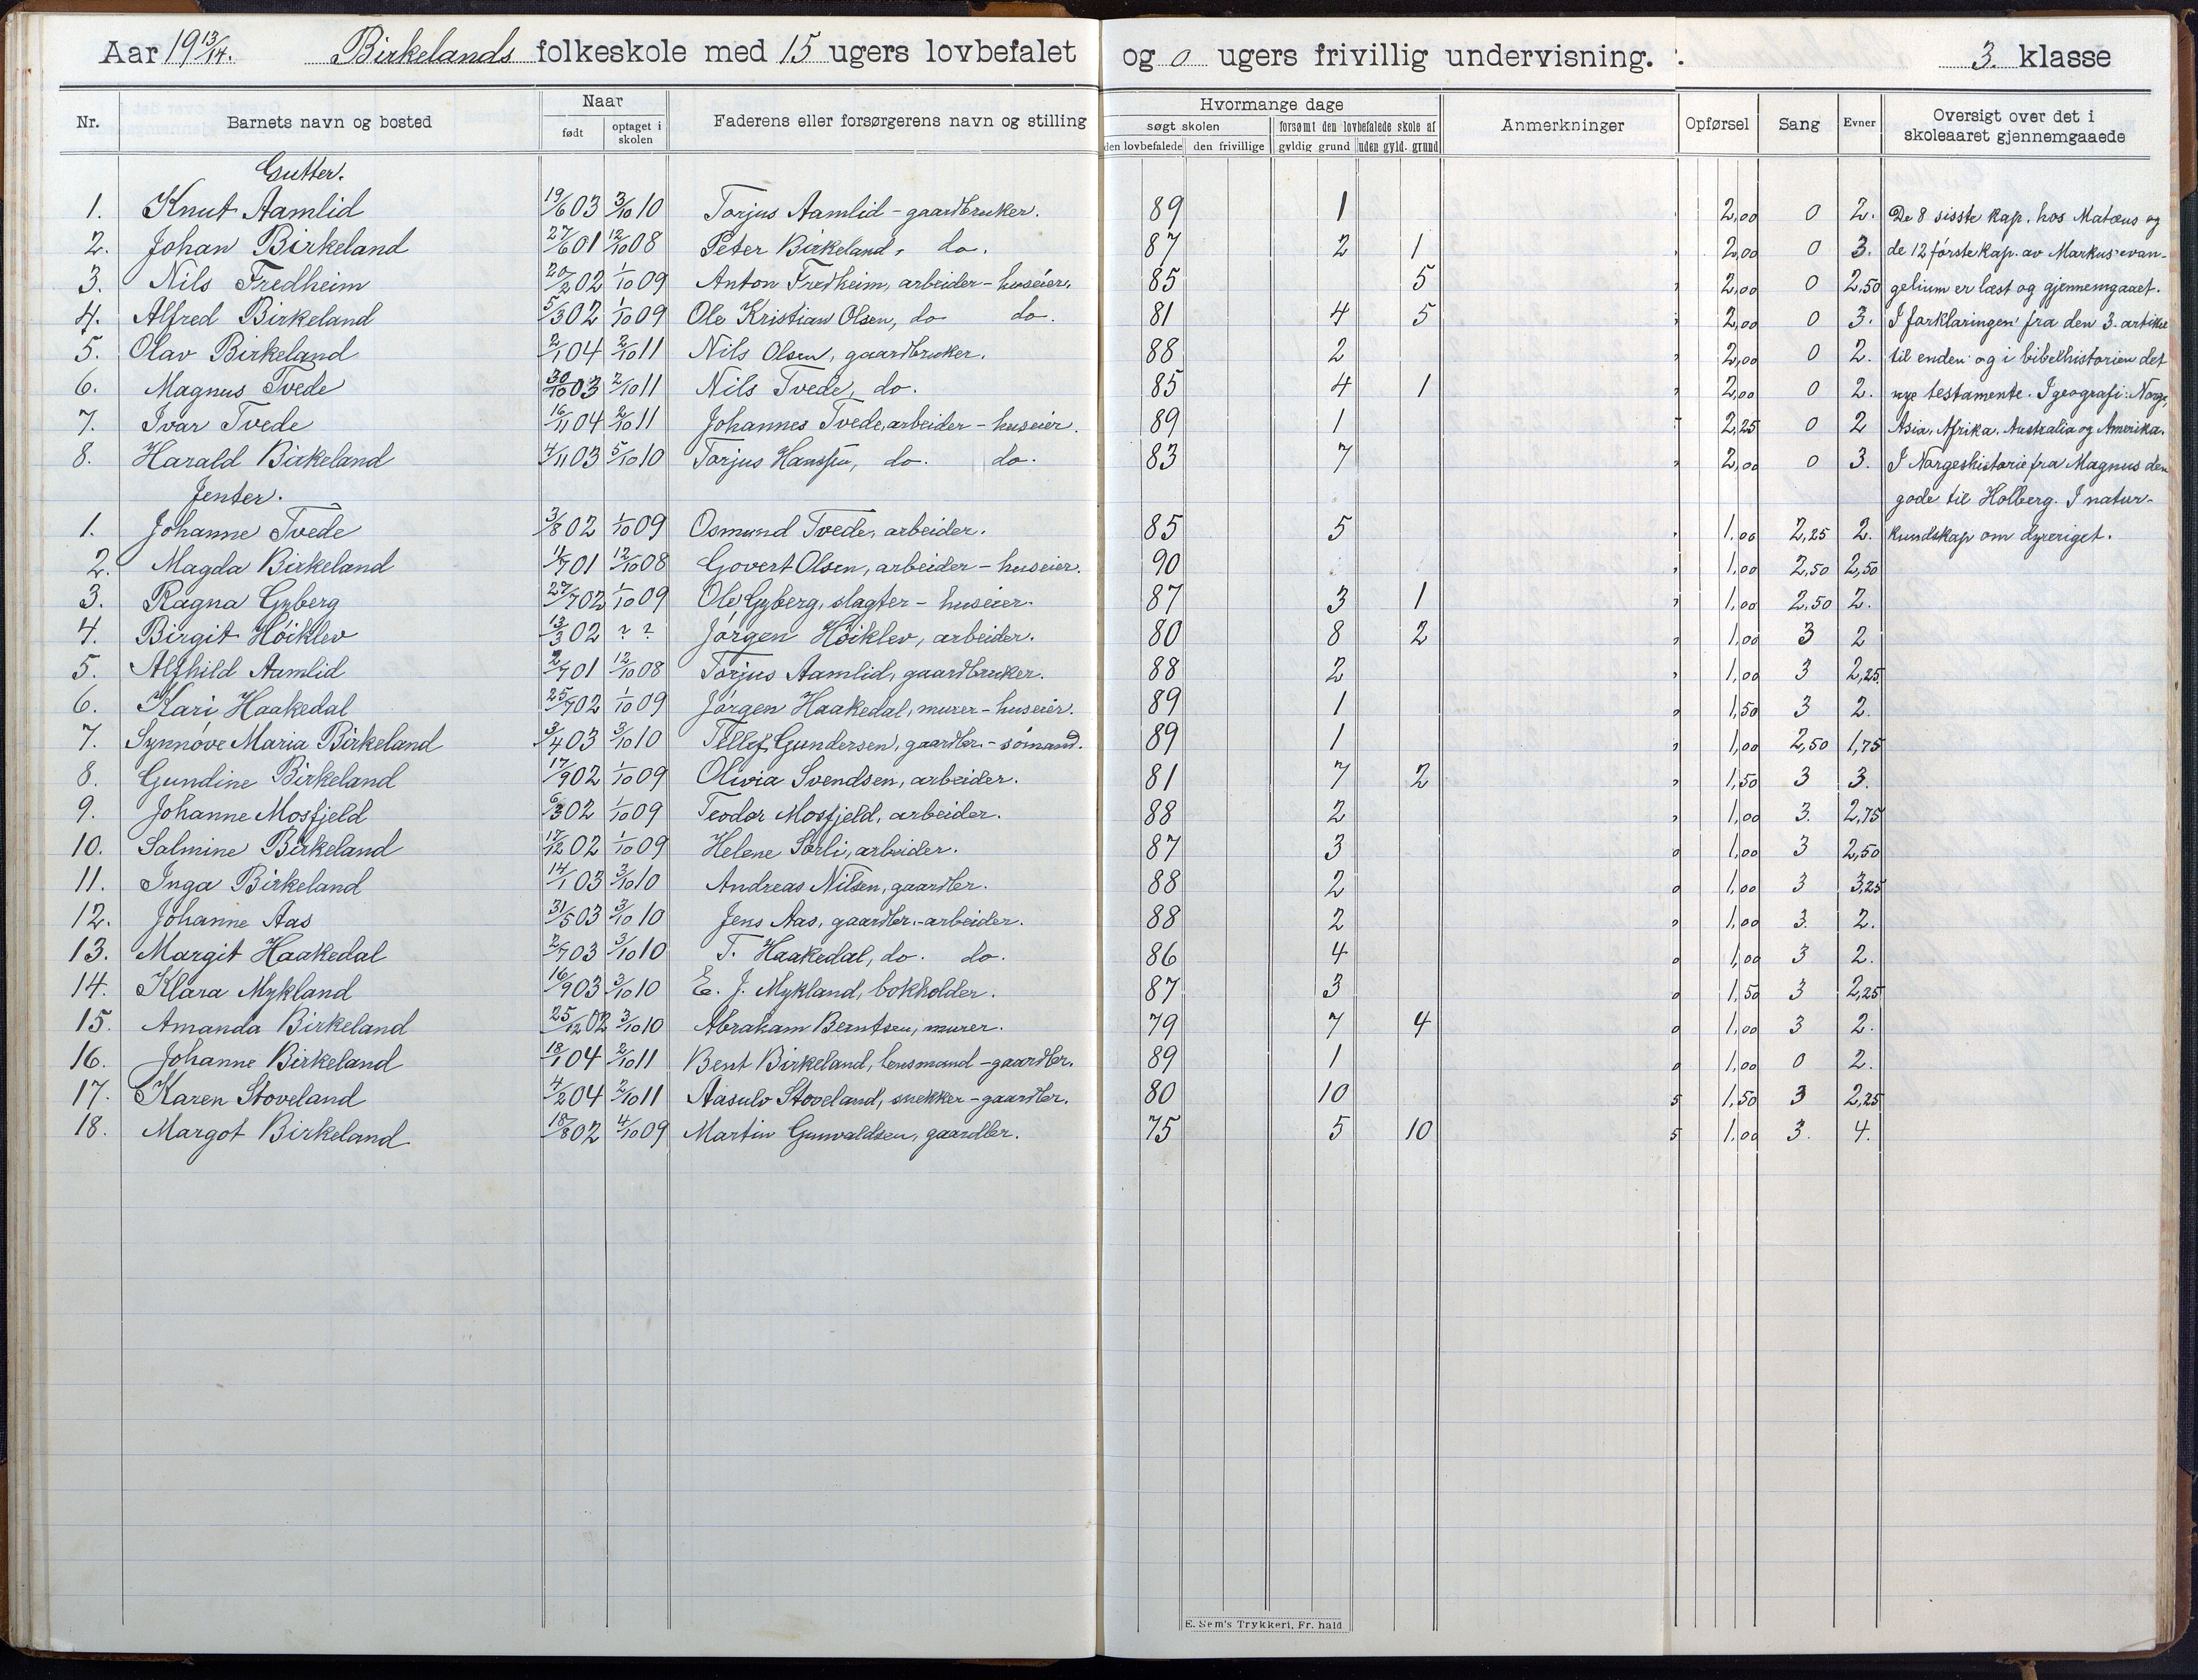 Aar 1913/14. Birkelands folkeskole med 15 ugers lovbefalet og 0 ugers frivillig undervisning. 3. klasse
Nr. Barnets navn og bosted Naar født optaget i skolen Faderens eller forsørgerens navn og stilling Hvormange dage søgt skolen den lovbefalede den frivillige forsømt den lovbefalede skole af gyldig grund uden gyld. grund Anmerkninger Opførsel Sang Evner Oversigt over det i skoleaaret gjennemgaaede
Gutter.
1. Knut Aamlid 19/6 03 3/10 10 Torjus Aamlid - gaardbruker. 89 1 2,00 0 2. De 8 sisste kap. hos Matæus og
2. Johan Birkeland 27/6 01 12/10 08 Peter Birkeland, do. 87 2 1 2,00 0 3. de 12 første kap. av Markus' evan-
3. Nils Fredheim 20/2 02 1/10 09 Anton Fredheim, arbeider - huseier. 85 5 2,00 0 2,50 gelium er læst og gjennemgaaet.
4. Alfred Birkeland 5/3 02 1/10 09 Ole Kristian Olsen, do do. 81 4 5 2,00 0 3. I forklaringen fra den 3. artikel
5. Olav Birkeland 2/1 04 2/10 11 Nils Olsen, gaardbruker. 88 2 2,00 0 2. til enden og i bibelhistorien det
6. Magnus Tvede 30/10 03 2/10 11 Nils Tvede, do. 85 4 1 2,00 0 2. nye testamente. I geografi: Norge,
7. Ivar Tvede 16/11 04 2/10 11 Johannes Tvede, arbeider - huseier. 89 1 2,25 0 2 Asia, Afrika, Australia og Amerika.
8. Harald Birkeland 4/11 03 5/10 10 Torjus Hanssen, do. do. 83 7 2,00 0 3. I Norgeshistorie fra Magnus den
Jenter. gode til Holberg. I natur-
1. Johanne Tvede 3/8 02 1/10 09 Osmund Tvede, arbeider. 85 5 1,00 2,25 2. kundskap om dyreriget.
2. Magda Birkeland 11/7 01 12/10 08 Govert Olsen, arbeider - huseier. 90 1,00 2,50 2,50
3. Ragna Gyberg 27/7 02 1/10 09 Ole Gyberg, slagter - huseier. 87 3 1 1,00 2,50 2.
4. Birgit Høiklev 13/3 02 ? ? Jørgen Høiklev, arbeider. 80 8 2 1,00 3 2
5. Alfhild Aamlid 2/7 01 12/10 08 Torjus Aamlid, gaardbruker. 88 2 1,00 3 2,25
6. Kari Haakedal 25/7 02 1/10 09 Jørgen Haakedal, murer - huseier. 89 1 1,50 3 2.
7. Synnøve Maria Birkeland 3/4 03 3/10 10 Tellef Gundersen, gaardbr. - sømand. 89 1 1,00 2,50 1,75
8. Gundine Birkeland 17/9 02 1/10 09 Olivia Svendsen, arbeider. 81 7 2 1,50 3 3.
9. Johanne Mosfjeld 6/3 02 1/10 09 Teodor Mosfjeld, arbeider. 88 2 1,00 3. 2,75
10. Salmine Birkeland 17/12 02 1/10 09 Helene Sørli, arbeider. 87 3 1,00 3 2,50
11. Inga Birkeland 14/1 03 3/10 10 Andreas Nilsen, gaardbr. 88 2 1,00 3 3,25
12. Johanne Aas 31/5 03 3/10 10 Jens Aas, gaardbr. - arbeider. 88 2 1,00 3. 2.
13. Margit Haakedal 2/7 03 3/10 10 T. Haakedal, do. do. 86 4 1,00 3 2.
14. Klara Mykland 16/9 03 3/10 10 E. J. Mykland, bokholder. 87 3 1,50 3 2,25
15. Amanda Birkeland 25/12 02 3/10 10 Abraham Berntsen, murer. 79 7 4 1,00 3 2.
16. Johanne Birkeland 18/1 04 2/10 11 Bent Birkeland, lensmand - gaardbr. 89 1 1,00 0 2.
17. Karen Stoveland 4/2 04 2/10 11 Aasulv Stoveland, snekker - gaardbr. 80 10 5 1,50 3 2,25
18. Margot Birkeland 18/8 02 4/10 09 Martin Gunvaldsen, gaardbr. 75 5 10 5 1,00 3. 4.
E. Sem's Trykkeri, Fr. hald